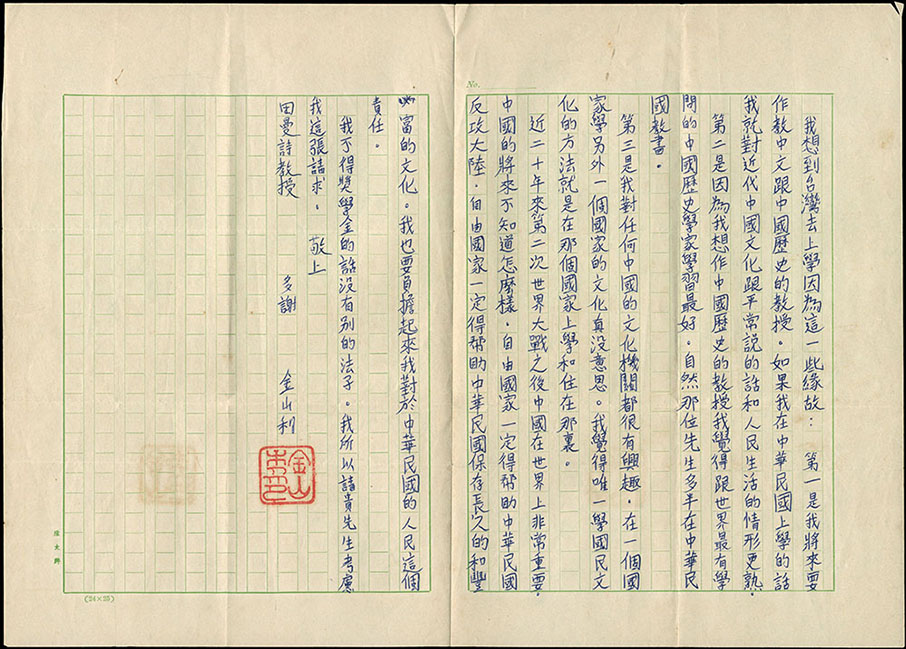 No.
我想到台灣去上學因為這一些緣故：第一是我將來要
作教中文跟中國歷史的教授。如果我在中華民國上學的話
我就對近代中國文化跟平常說的話和人民生活的情形更熟。
第二是因為我想作中國歷史的教授我覺得跟世界最有學
問的中國歷史學家學習最好。自然那位先生多半在中華民
國教書。
第三是我對任何中國的文化機關都很有興趣。在一個國
家學另外一個國家的文化真沒意思。我覺得唯一學國民文
化的方法就是在那個國家上學和住在那裏。
近二十年來第二次世界大戰之後中國在世界上非常重要。
中國的將來不知道怎麼樣。自由國家一定得幫助中華民國
反攻大陸。自由國家一定得幫助中華民國保存長久的和豐
富的文化。我也要負擔起來我對於中華民國的人民這個
責任。
我不得獎學金的話沒有別的法子。我所以請貴先生考慮
我這張請求。 敬上
田曼詩教授
多謝 金山利
金山
(24×25)